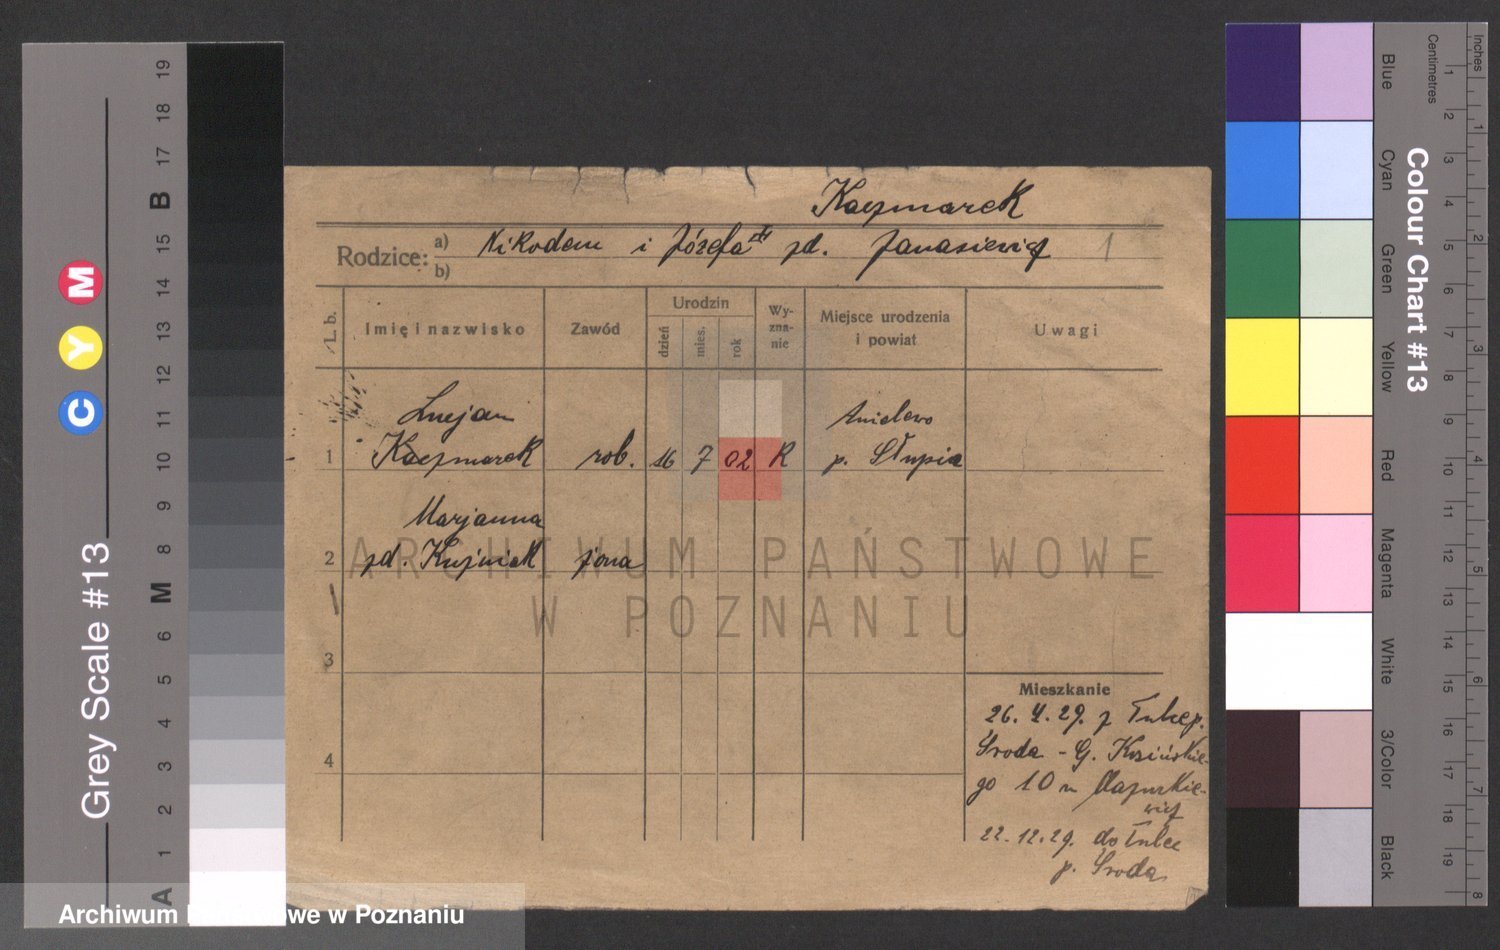 Kaczmarek
Rodzice: a) Nikodem i Józefa zd. Janasiewicz 1
b)
L. b.
Imię i nazwisko
Zawód
Urodzin
dzień
mies.
rok
Wy-
zna-
nie
Miejsce urodzenia
i powiat
Uwagi
Lucjan
Anielewo
1 Kaczmarek rob. 16 7 02 R p. Słupia
Marjanna
2 zd. Kuźniak żona
3
4
Mieszkanie
26. 4. 29. z Tulce p.
Środa - G. Kosińskie-
go 10 u Mazurkie-
wicz
22. 12. 29. do Tulec
p. Środa
ARCHIWUM PAŃSTWOWE
W POZNANIU
Archiwum Państwowe w Poznaniu
Grey Scale #13
C Y M
A 1 2 3 4 5 6 M 8 9 10 11 12 13 14 15 B 17 18 19
Colour Chart #13
Blue
Cyan
Green
Yellow
Red
Magenta
White
3/Color
Black
Centimetres
1 2 3 4 5 6 7 8 9 10 11 12 13 14 15 16 17 18 19
Inches
1 2 3 4 5 6 7 8